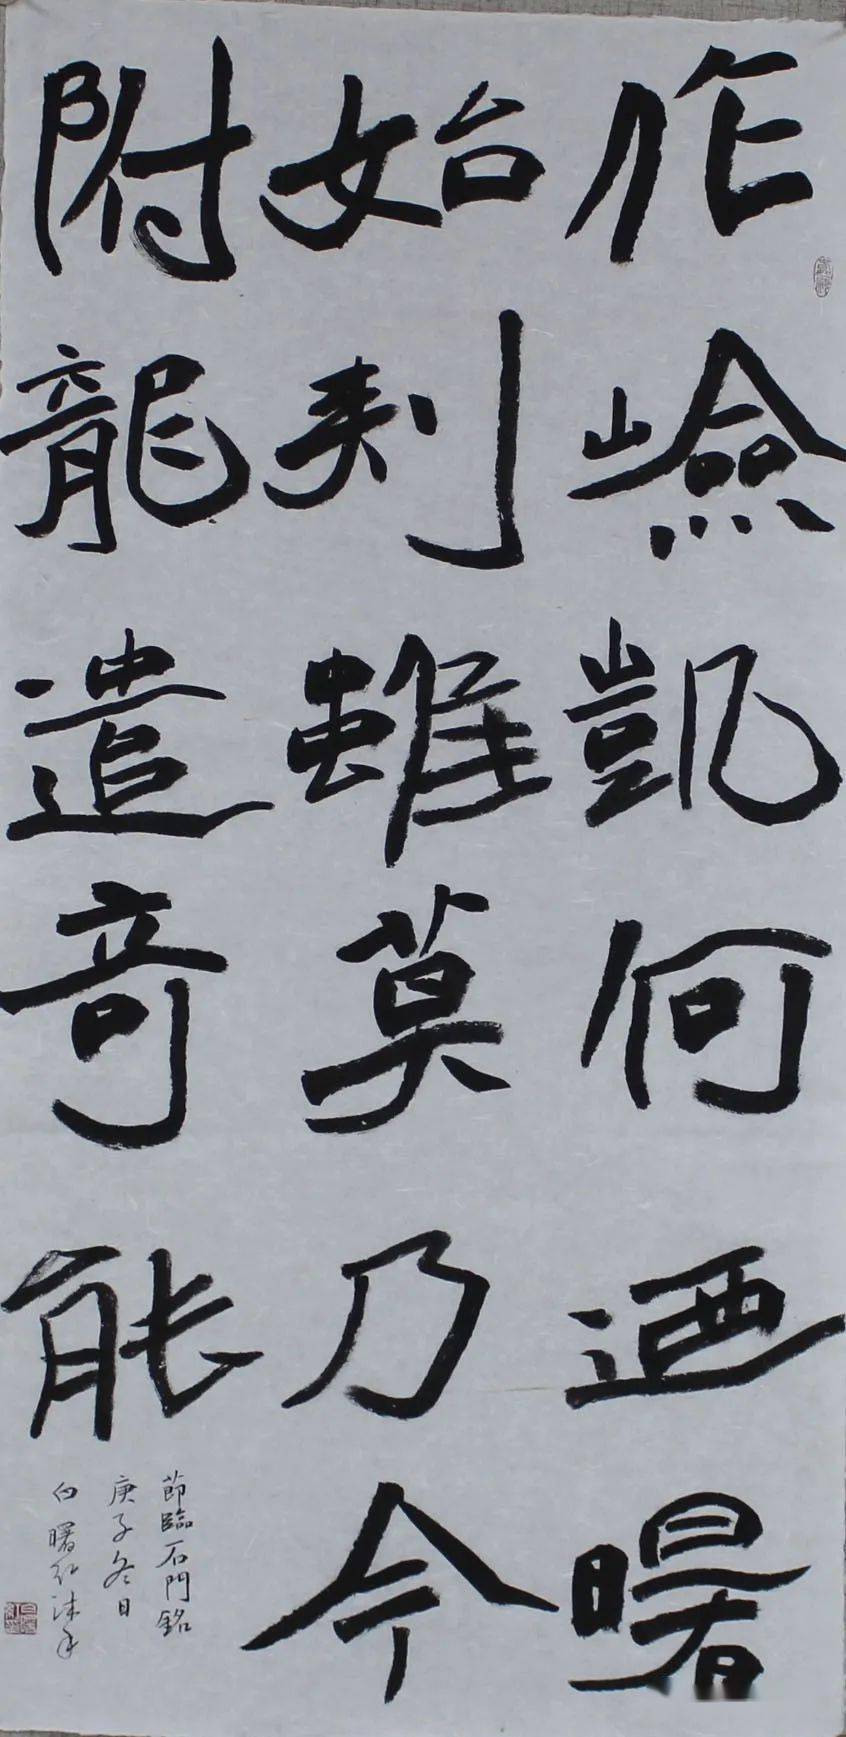 作嶮凱何迺曙
始刾雖莫乃今
附龍遣奇能
節臨石門銘
庚子冬日
白曙红沐手